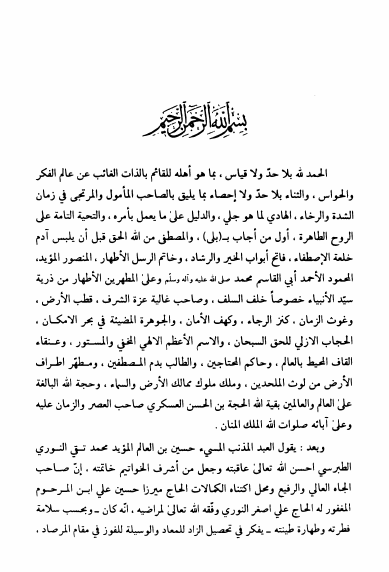 بسم الله الرحمن الرحيم
الحمد لله بلا حدّ ولا قياس ، بما هو أهله للقائم بالذات الغائب عن عالم الفكر
والحواس ، والثناء بلا حدّ ولا إحصاء بما يليق بالصاحب المأمول والمرتجى في زمان
الشدة والرخاء ، الهادي لما هو جلي ، والدليل على ما يعمل بأمره ، والتحية التامة على
الروح الطاهرة ، أول من أجاب بـ(بلى) ، والمصطفى من الله الحق قبل أن يلبس آدم
خلعة الإصطفاء ، فاتح أبواب الخير والرشاد ، وخاتم الرسل الأطهار ، المنصور المؤيد،
المحمود الأحمد أبي القاسم محمد صلى الله عليه وآله وسلم وعلى المطهرين الأطهار من ذرية
سيّد الأنبياء خصوصاً خلف السلف ، وصاحب غالية عزة الشرف ، قطب الأرض ،
وغوث الزمان ، كنز الرجاء ، وكهف الأمان ، والجوهرة المضيئة في بحر الامكان ،
الحجاب الازلي للحق السبحان ، والاسم الأعظم الالهي المخفي والمستور ، وعنقاء
القاف المحيط بالعالم ، وحاكم المحتاجين ، والطالب بدم المصطفين ، ومطهّر اطراف
الأرض من لوث الملحدين ، وملك ملوك ممالك الأرض والسماء ، وحجة الله البالغة
على العالم والعالمين بقية الله الحجة بن الحسن العسكري صاحب العصر والزمان عليه
وعلى آبائه صلوات الله الملك المنان .
وبعد : يقول العبد المذنب المسيء حسين بن العالم المؤيد محمد تقي النوري
الطبرسي احسن الله تعالى عاقبته وجعل من أشرف الخواتيم خاتمته ، إنّ صاحب
الجاه العالي والرفيع ومحل اكتناء الكمالات الحاج ميرزا حسين علي ابن المرحوم
المغفور له الحاج علي اصغر النوري وفّقه الله تعالى لمراضيه ، انّه كان ـ وبحسب سلامة
فطرته وطهارة طينته ـ يفكر في تحصيل الزاد للمعاد والوسيلة للفوز في مقام المرصاد ،